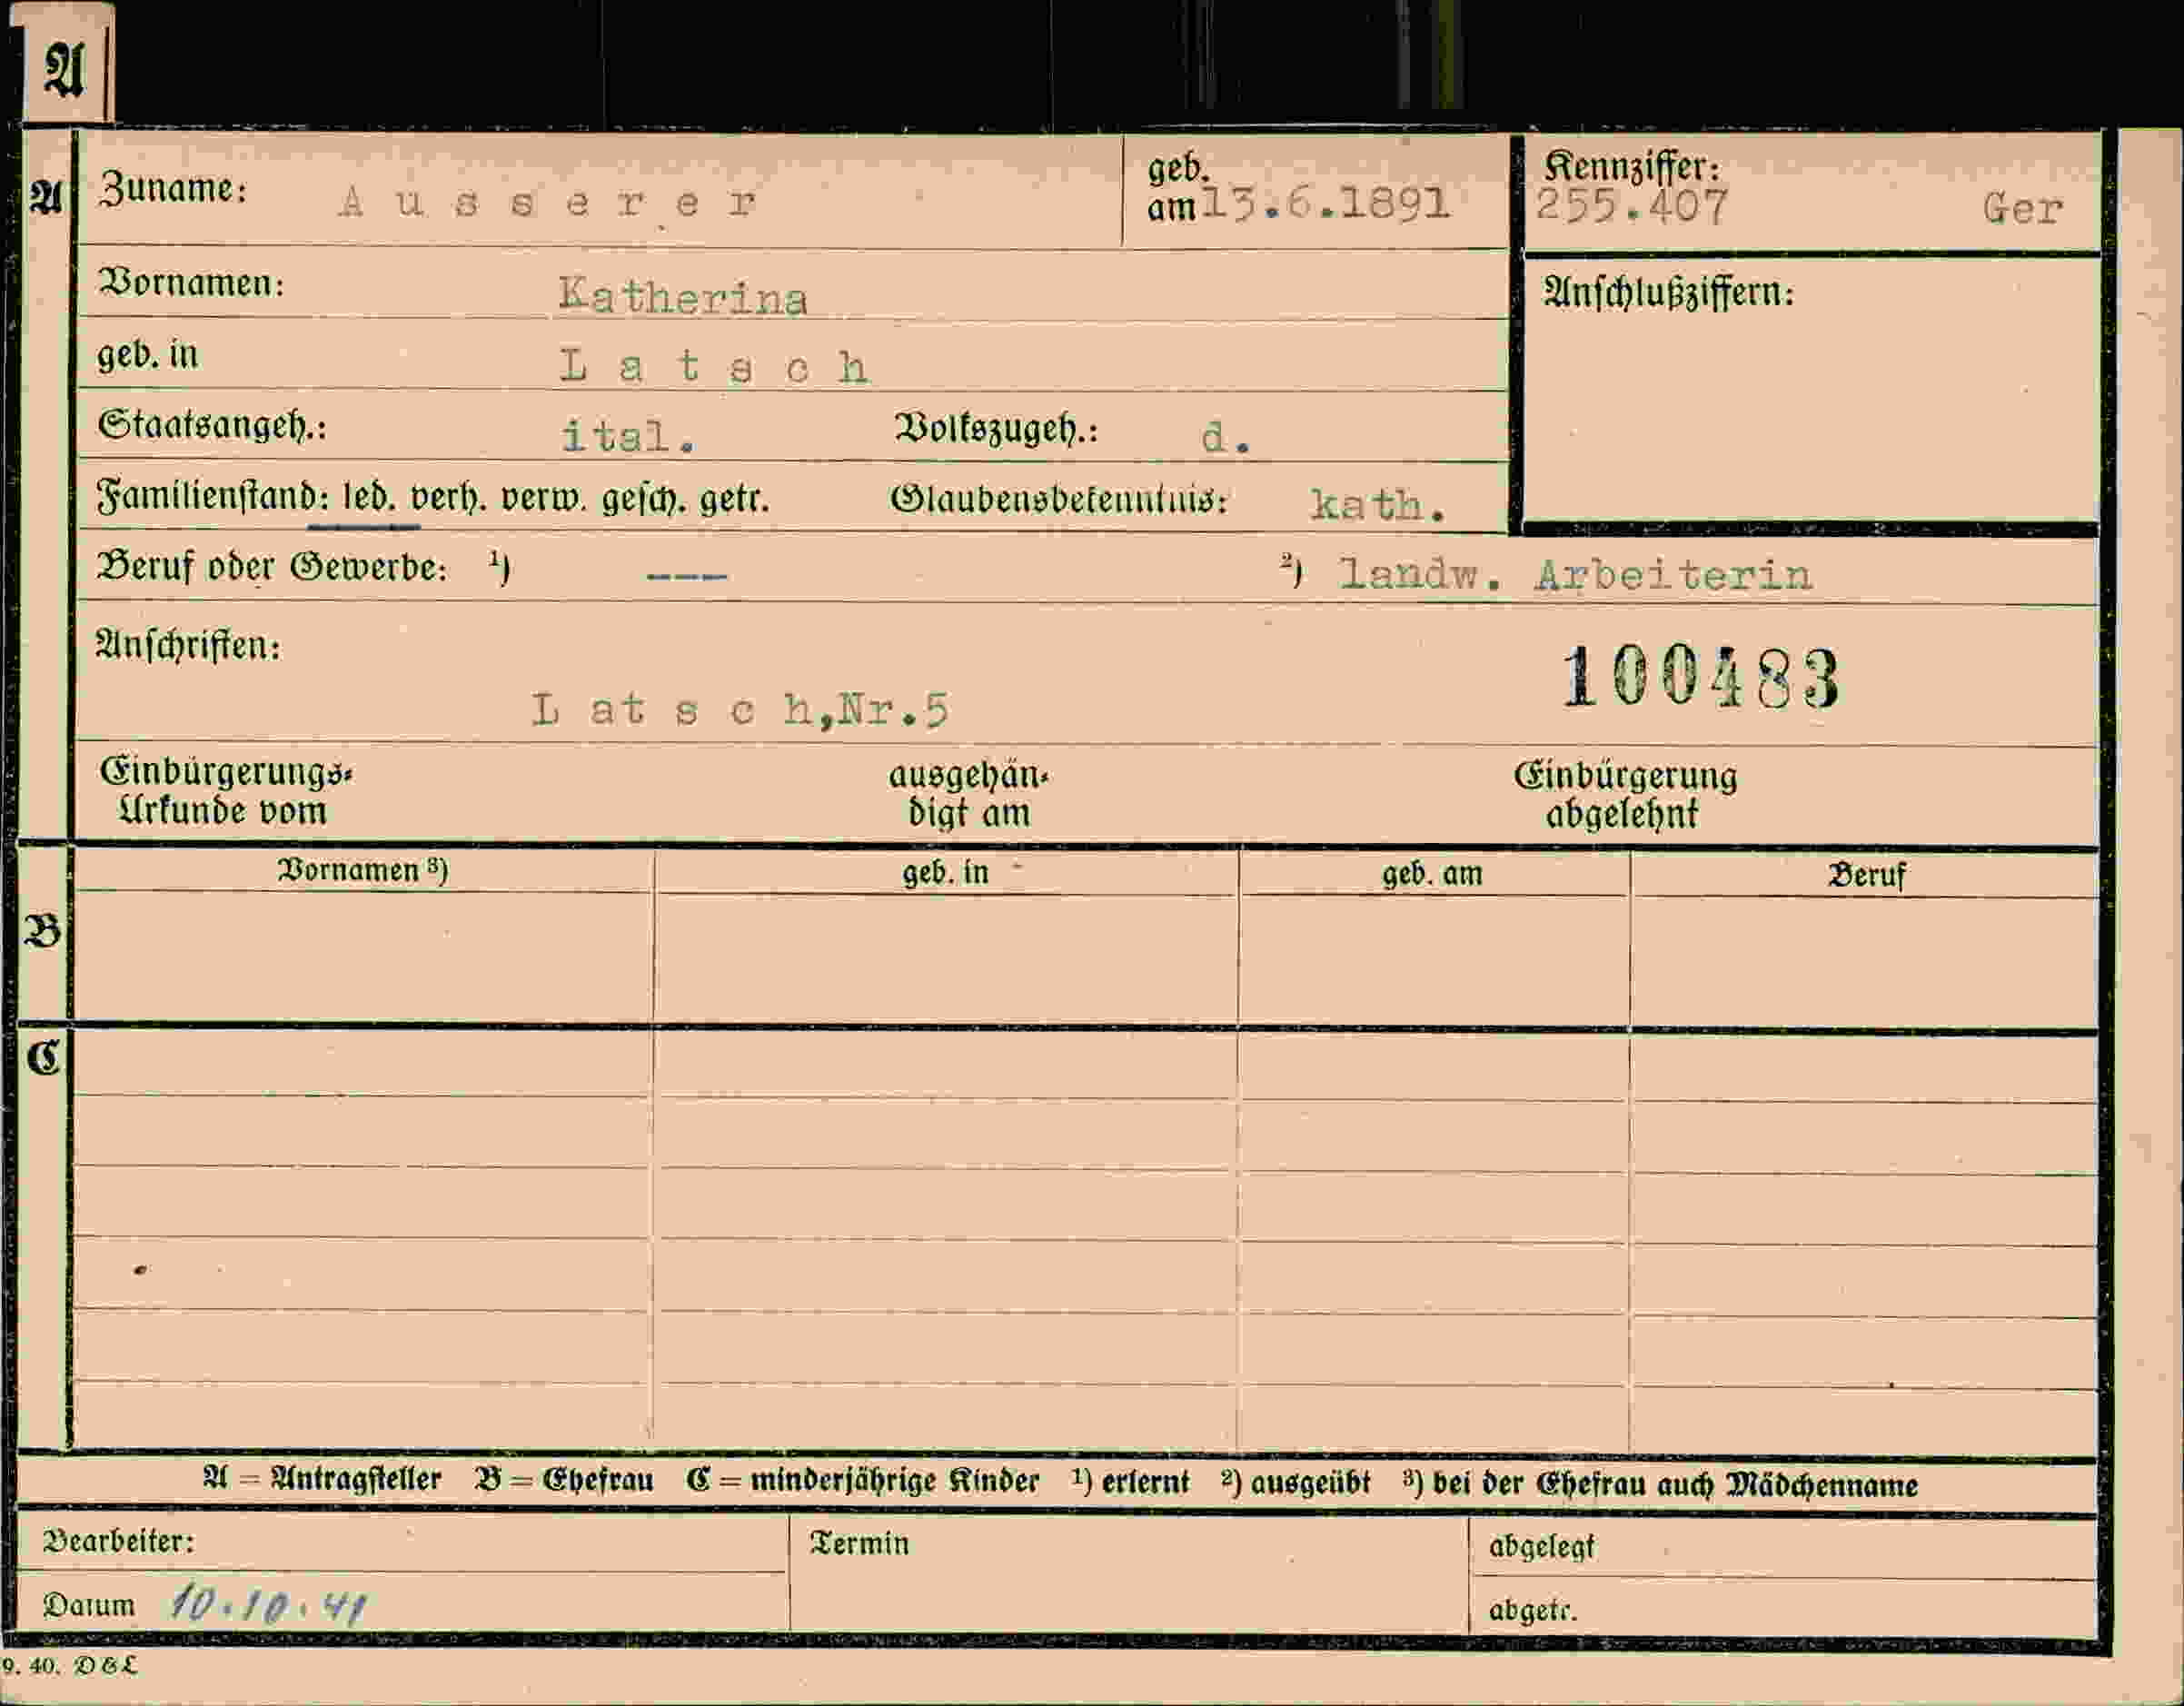 A
A
Zuname: Ausserer geb. am 13.6.1891 Kennziffer: 255.407 Ger
Vornamen: Katherina Anschlußziffern:
geb. in Latsch
Staatsangeh.: ital. Volkszugeh.: d.
Familienstand: led. verh. verw. gesch. getr. Glaubensbekenntnis: kath.
Beruf oder Gewerbe: ¹) --- ²) landw. Arbeiterin
Anschriften: 100483
Latsch,Nr.5
Einbürgerungs- ausgehän- Einbürgerung
Urkunde vom digt am abgelehnt
Vornamen ³) geb. in geb. am Beruf
B
C
A = Antragsteller B = Ehefrau C = minderjährige Kinder ¹) erlernt ²) ausgeübt ³) bei der Ehefrau auch Mädchenname
Bearbeiter: Termin abgelegt
Datum 10.10.41 abgetr.
9. 40. D&L